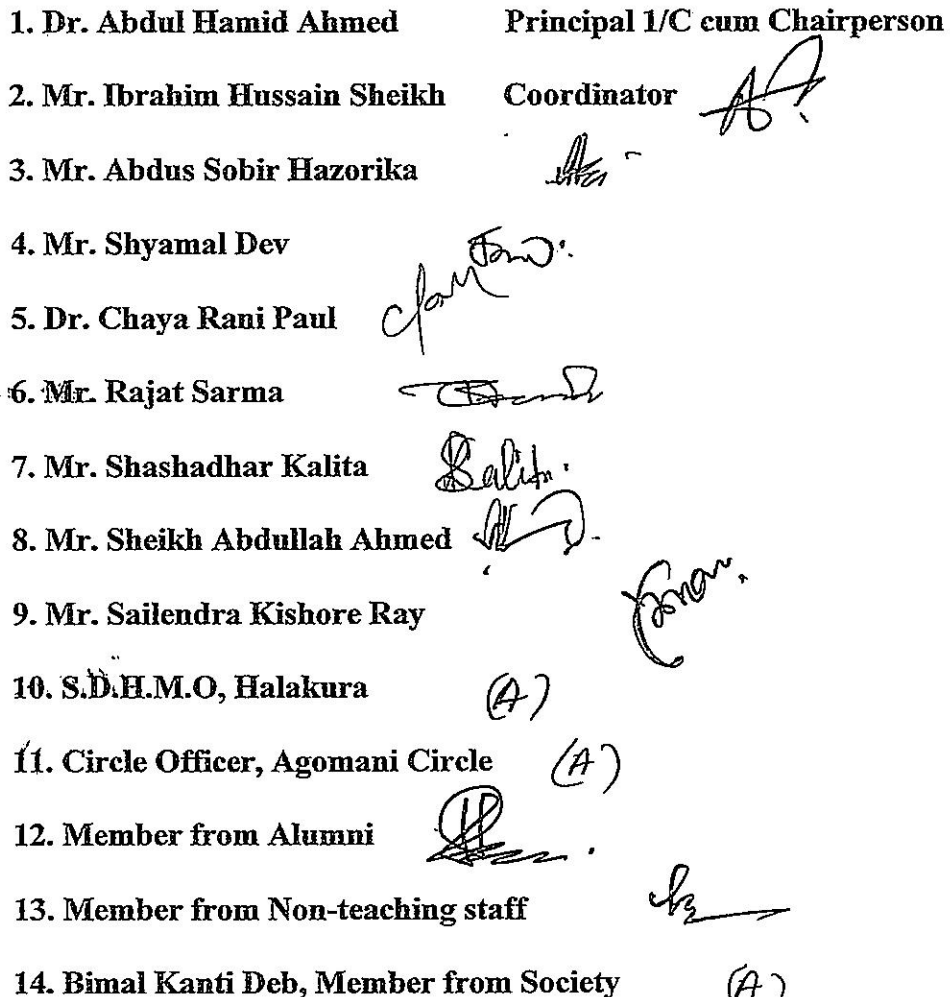 1. Dr. Abdul Hamid Ahmed Principal 1/C cum Chairperson
2. Mr. Ibrahim Hussain Sheikh Coordinator
3. Mr. Abdus Sobir Hazorika
4. Mr. Shyamal Dev
5. Dr. Chaya Rani Paul
6. Mr. Rajat Sarma
7. Mr. Shashadhar Kalita
8. Mr. Sheikh Abdullah Ahmed
9. Mr. Sailendra Kishore Ray
10. S.D.H.M.O, Halakura (A)
11. Circle Officer, Agomani Circle (A)
12. Member from Alumni
13. Member from Non-teaching staff
14. Bimal Kanti Deb, Member from Society (A)